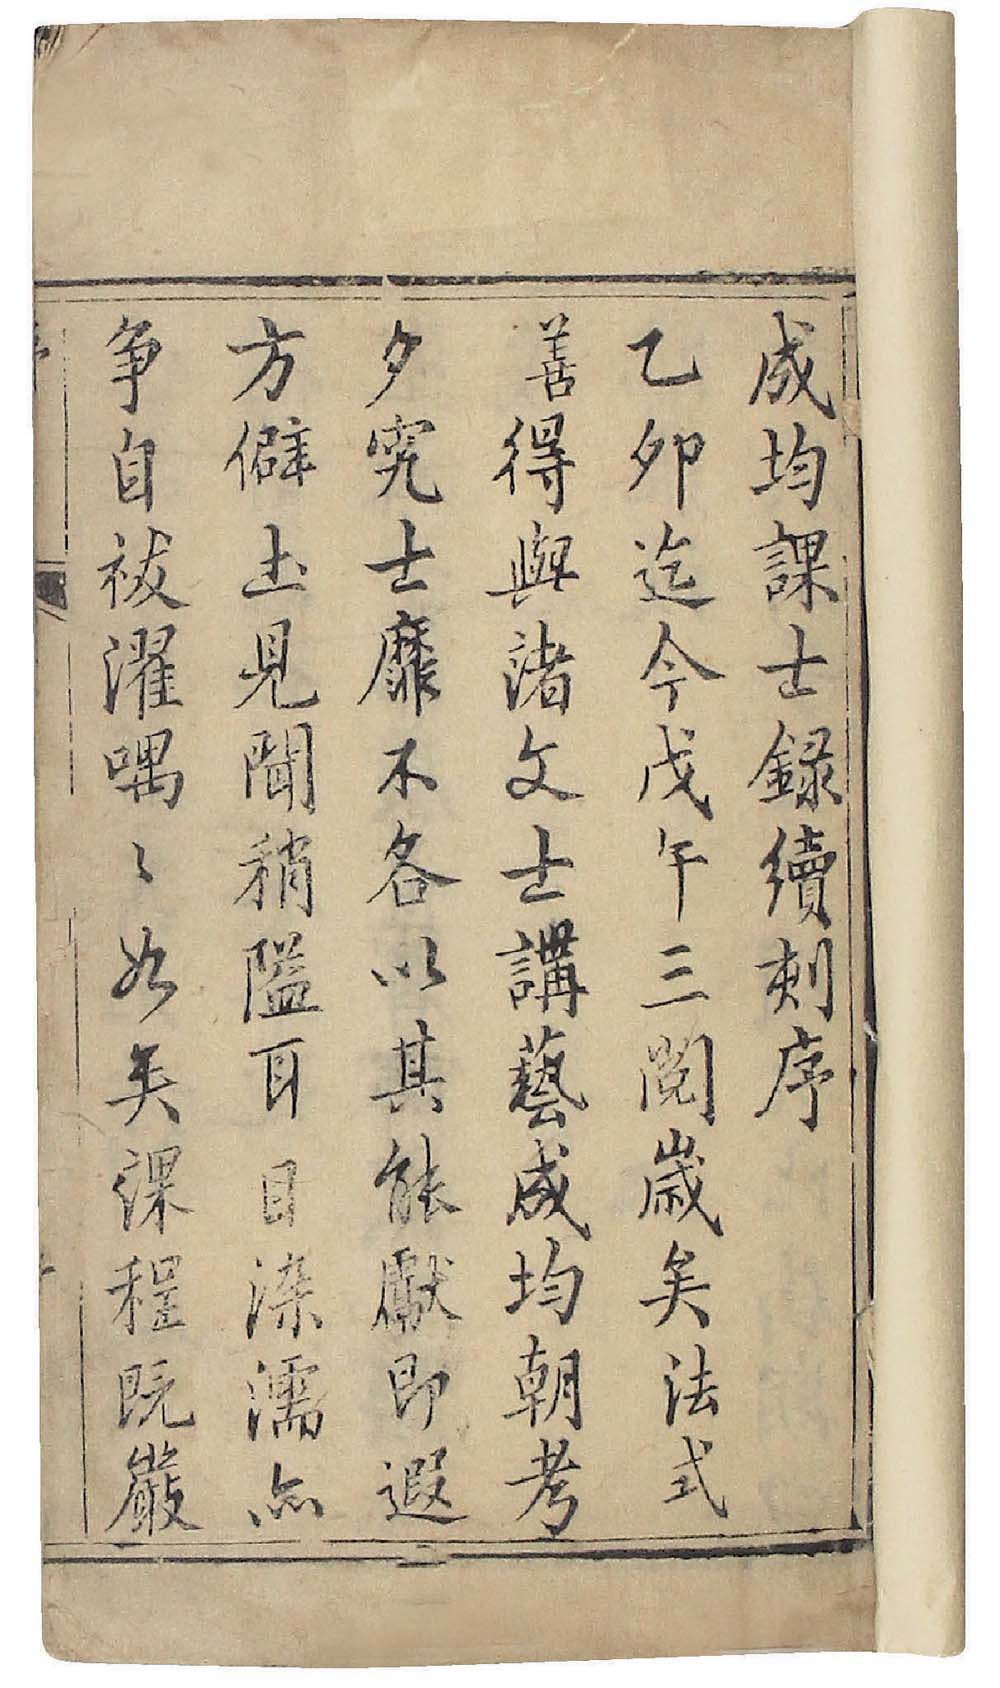 成均課士録續刻序
乙卯迄今戊午三閱歲矣法式
善得與諸文士講藝成均朝考
夕究士靡不各以其能獻即遐
方僻土見聞稍隘耳目染濡亦
爭自祓濯喁〻如矣課程既嚴